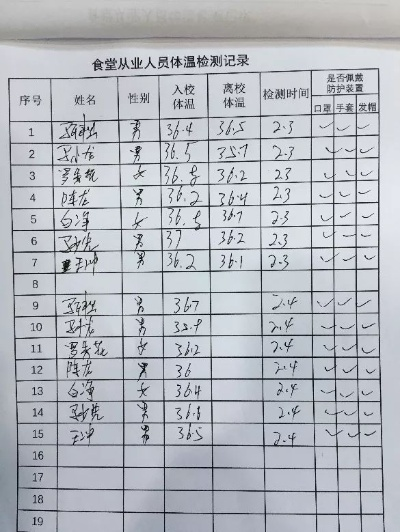 食堂从业人员体温检测记录
序号 姓名 性别 入校体温 离校体温 检测时间 是否佩戴防护装置 口罩 手套 发帽
1 男 36.4 36.5 2.3 ✓ ✓ ✓
2 男 36.5 35.7 2.3 ✓ ✓ ✓
3 罗秀花 女 36.2 2.3 ✓ ✓ ✓
4 陈龙 男 36.2 36.4 2.3 ✓ ✓ ✓
5 白净 女 36.7 2.3 ✓ ✓ ✓
6 男 37 36.2 2.3 ✓ ✓ ✓
7 王冲 男 36.2 36.1 2.3 ✓ ✓ ✓
8
9 男 36.7 2.4 ✓ ✓ ✓
10 男 35.9 2.4 ✓ ✓ ✓
11 罗秀花 女 36.2 2.4 ✓ ✓ ✓
12 陈龙 男 36 2.4 ✓ ✓ ✓
13 白净 女 36.4 2.4 ✓ ✓ ✓
14 男 2.4 ✓ ✓ ✓
15 王冲 男 36.5 2.4 ✓ ✓ ✓
16
17
18
19